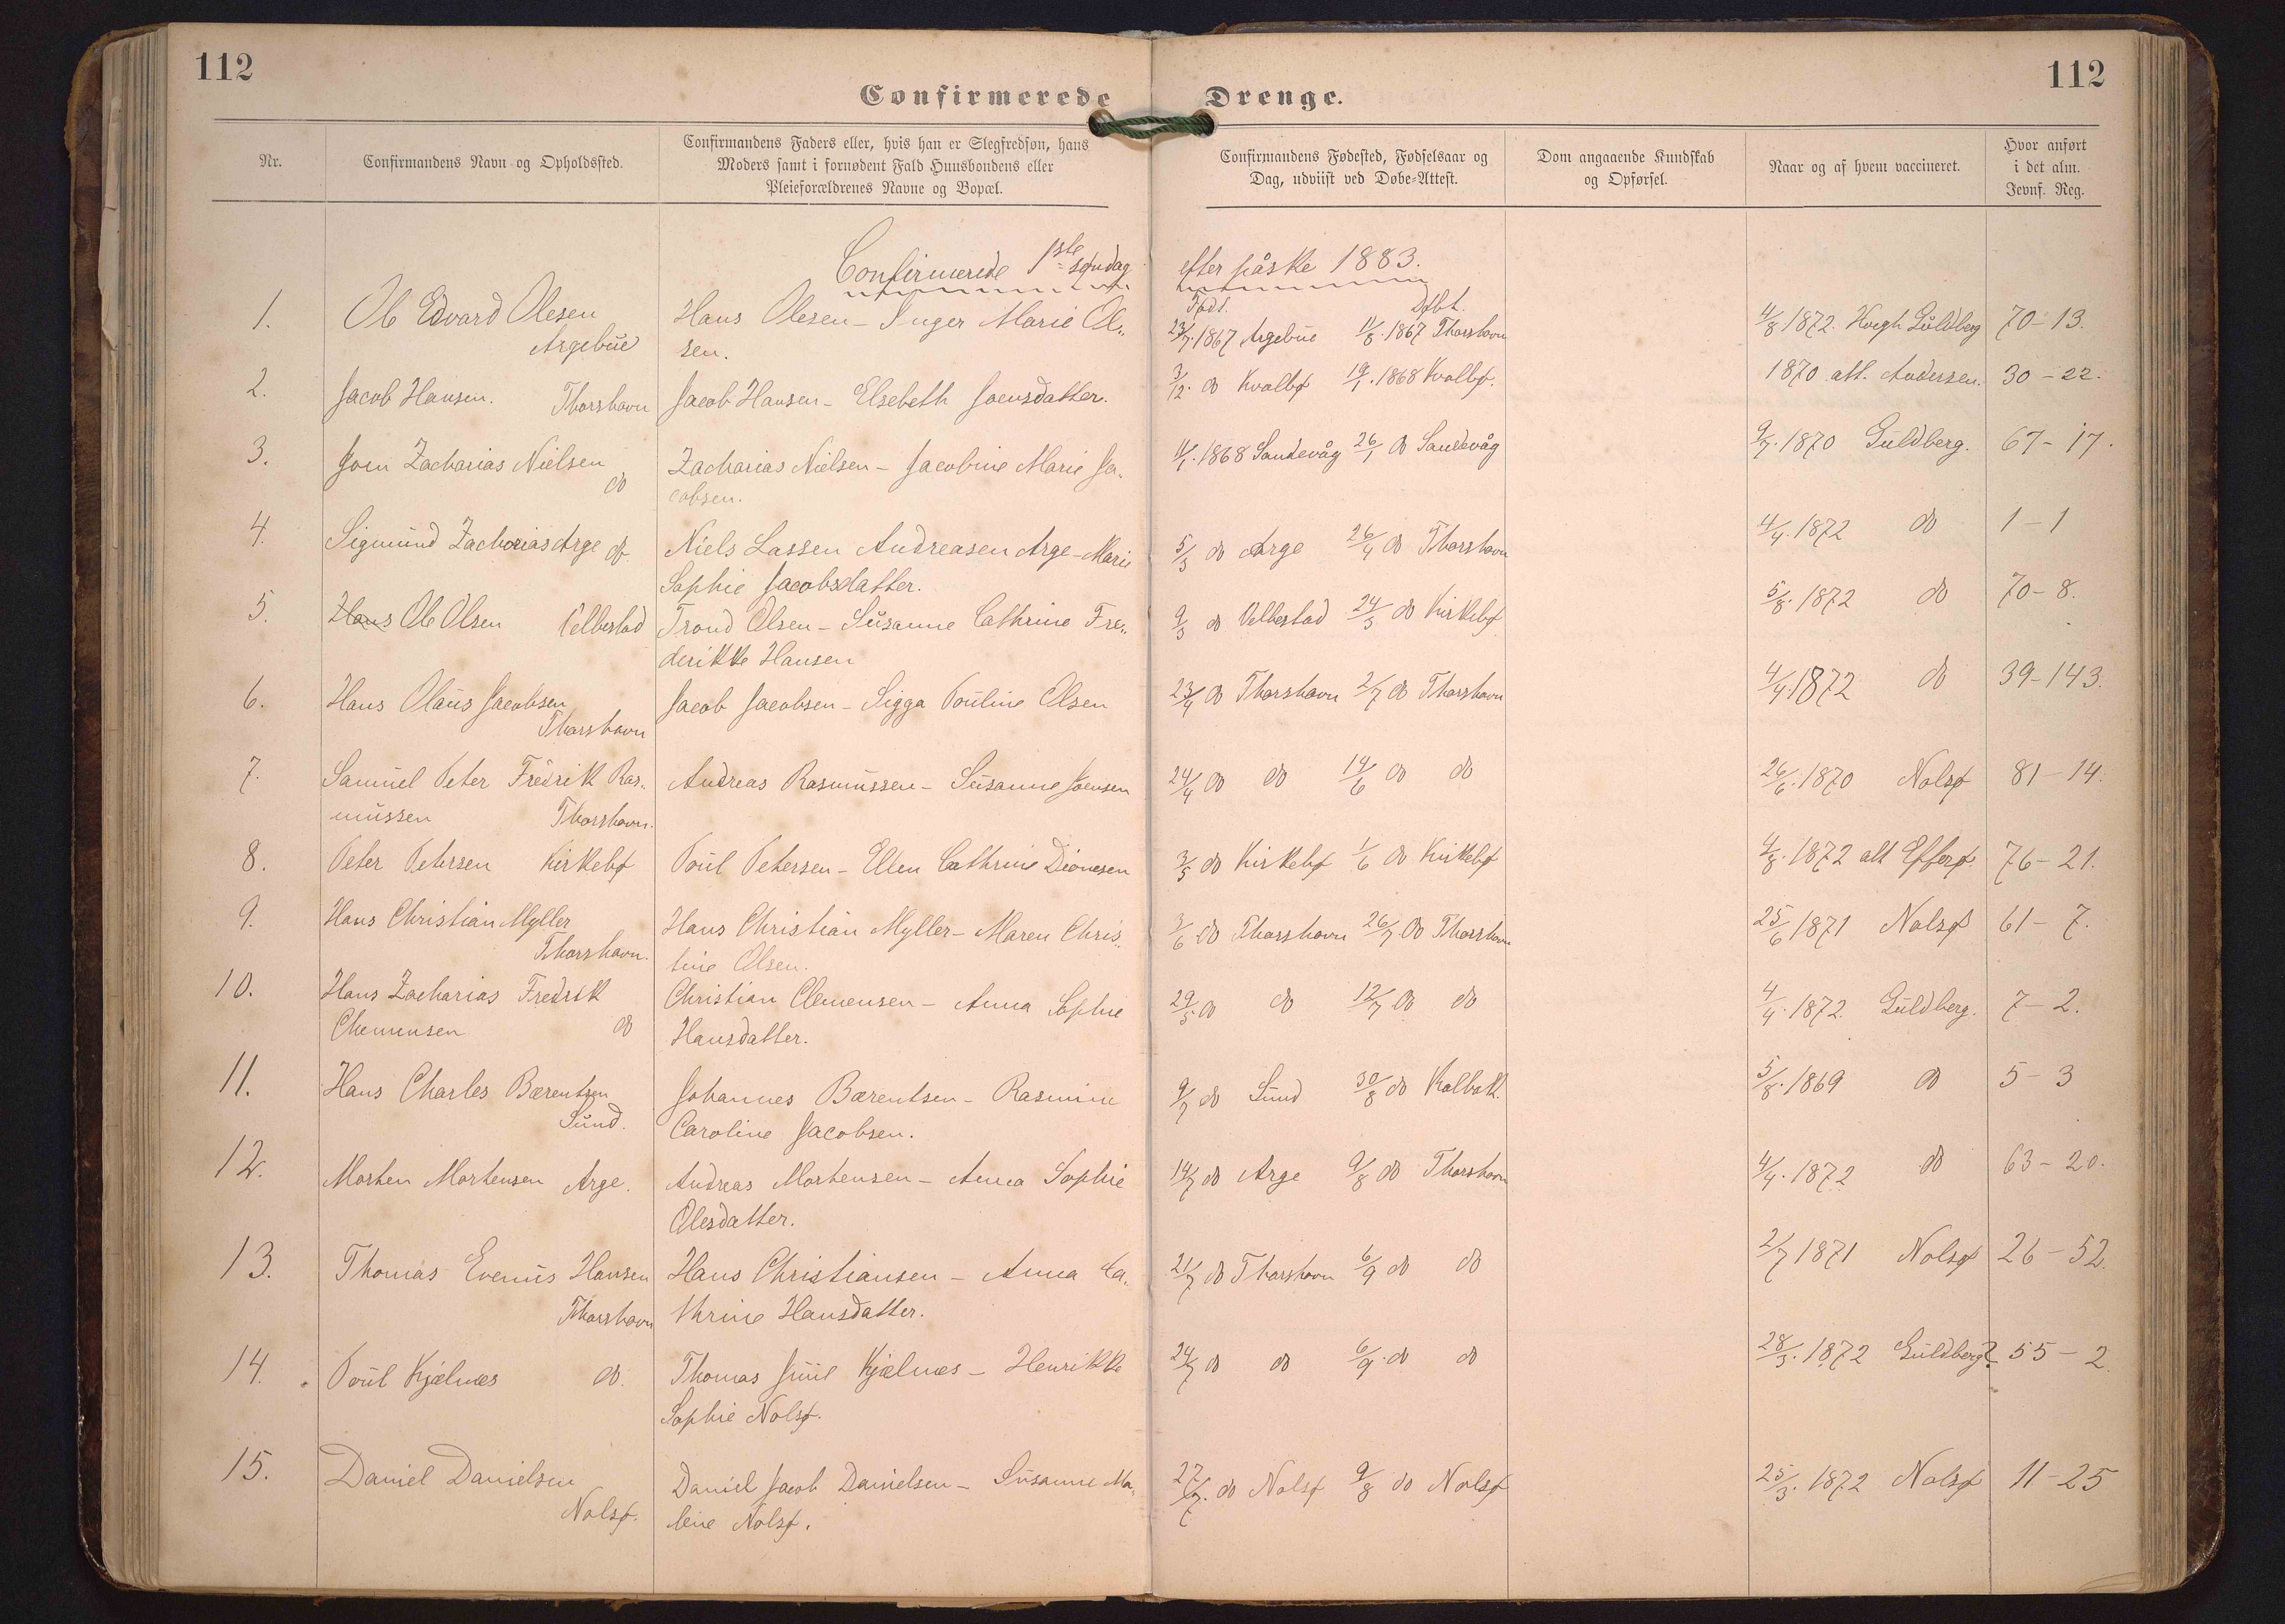 112
112
Confirmerede Drenge.
Nr.
Confirmandens Navn og Opholdssted.
Confirmandens Faders eller, hvis han er Slegfredsøn, hans
Moders samt i fornødent Fald Huusbondens eller
Pleieforældrenes Navne og Bopæl.
Confirmandens Fødested, Fødselsaar og
Dag, udviist ved Døbe-Attest.
Dom angaaende Kundskab
og Opførsel.
Naar og af hvem vaccineret.
Hvor anført
i det alm.
Jevnf. Reg.
Confirmerede 1ste søndag efter påske 1883.
Født. Døbt.
1. Ole Edvard Olesen Hans Olesen - Inger Marie Ol„ 23/7. 1867 Argebue 11/8. 1867 Thorshavn 4/8 1872. Høegh Guldberg 70-13.
Argebue sen.
2. Jacob Hansen. Thorshavn Jacob Hansen - Elsebeth Joensdatter. 3/12. do Kvalbø 19/1. 1868 Kvalbø. 1870 att. Andersen. 30-22.
3. Joen Zacharias Nielsen Zacharias Nielsen - Jacobine Marie Ja„ 11/1. 1868 Sandevåg 26/1 do Sandevåg 9/7. 1870 Guldberg. 67-17.
do cobsen.
4. Sigmund Zacharias Arge do Niels Lassen Andreasen Arge - Marie 5/3 do Arge 26/4 do Thorshavn 4/4. 1872 do 1-1
Sophie Jacobsdatter.
5. Hans Ole Olsen Velbestad Trond Olsen - Susanne Cathrine Fre„ 9/3 do Velbestad 24/3 do Kirkebø 5/8. 1872 do 70-8.
derikke Hansen
6. Hans Olaus Jacobsen Jacob Jacobsen - Sigga Pouline Olsen 23/4 do Thorshavn 2/7 do Thorshavn 4/4. 1872 do 39-143.
Thorshavn
7. Samuel Peter Fredrik Ras„ Andreas Rasmussen - Susanne Joensen 24/4 do do 14/6 do do 26/6. 1870 Nolsø 81-14.
mussen Thorshavn.
8. Peter Petersen Kirkebø Poul Petersen - Ellen Cathrine Dionesen 3/5 do Kirkebø 1/6 do Kirkebø 4/8. 1872 att Effersø. 76-21.
9. Hans Christian Myller Hans Christian Myller - Maren Chris„ 3/6 do Thorshavn 26/7 do Thorshavn 25/6 1871 Nolsø 61-7.
Thorshavn. tine Olsen.
10. Hans Zacharias Fredrik Christian Clemensen - Anna Sophie 29/5 do do 12/7 do do 4/4. 1872. Guldberg. 7-2.
Clemensen do Hansdatter.
11. Hans Charles Bærentsen Johannes Bærentsen - Rasmine 9/7 do Sund 30/8 do Kalbak. 5/8. 1869 do 5-3
Sund. Caroline Jacobsen.
12. Morten Mortensen Arge. Andreas Mortensen - Anna Sophie 14/7 do Arge 9/8 do Thorshavn 4/4. 1872 do 63-20.
Olesdatter.
13. Thomas Evenus Hansen Hans Christiansen - Anna Ca„ 21/7 do Thorshavn 6/9 do do 2/7 1871 Nolsø 26-52.
Thorshavn thrine Hansdatter.
14. Poul Kjølnes do. Thomas Juul Kjølnes - Henrikke 24/7 do do 6/9. do do 28/3. 1872 Guldberg? 55-2
Sophie Nolsø.
15. Daniel Danielsen Daniel Jacob Danielsen - Susanne Ma„ 27/7. do Nolsø 9/8 do Nolsø 25/3. 1872 Nolsø 11-25
Nolsø. lene Nolsø.